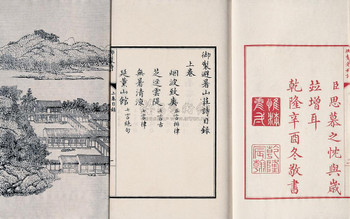 臣思慕之忱與歲
竝增耳
乾隆辛酉冬敬書
御製避暑山莊詩目錄
上卷
烟波致爽
芝逕雲隄
無暑清涼
延薰山館